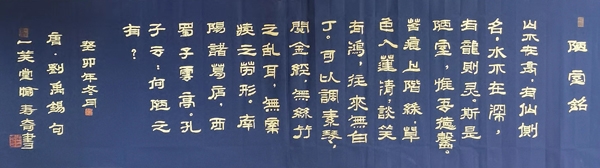 陋室銘
山不在高,有仙側
名。水不在深,
有龍則灵。斯是
陋室,惟吾德馨。
苔痕上階綠草
色入簾清,談笑
有鴻,往來無白
丁。可以調素琴,
閱金經。無絲竹
之亂耳,無案
牘之勞形。南
陽諸葛廬,西
蜀子雲亭。孔
子云:何陋之
有?
癸卯年冬月
唐·劉禹錫句
一笑堂 書